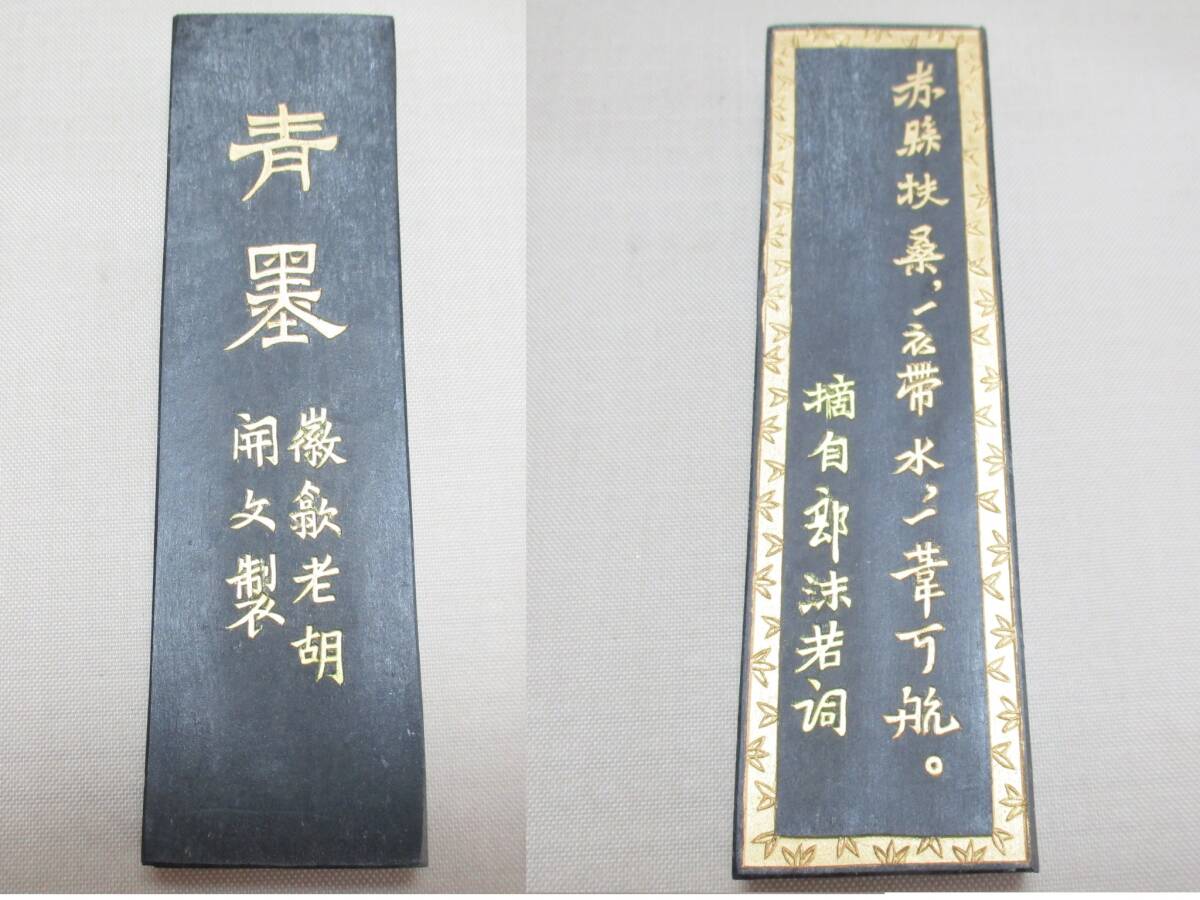 青墨
徽歙老胡
開文製
赤縣扶桑，一衣帶水，一葦可航。
摘自郭沫若词